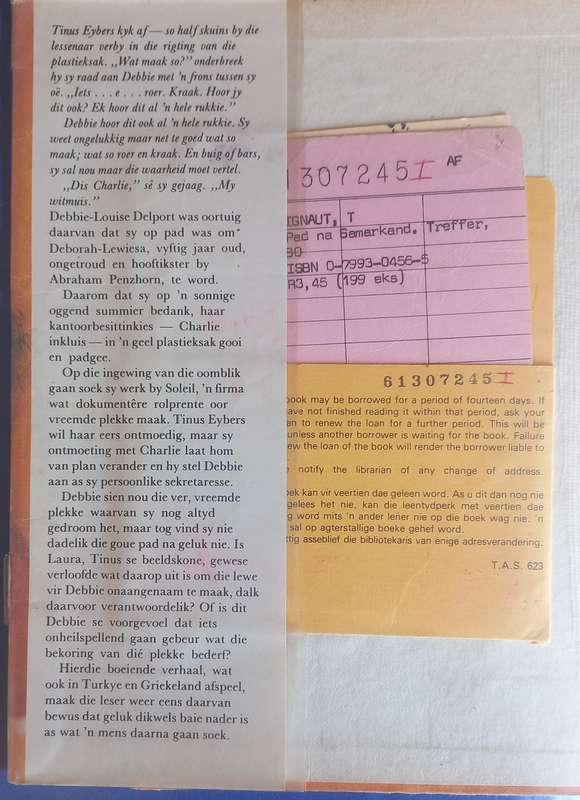 Tinus Eybers kyk af — so half skuins by die
lessenaar verby in die rigting van die
plastieksak. ,,Wat maak so?" onderbreek
hy sy raad aan Debbie met 'n frons tussen sy
oë. ,,Iets . . . e . . . roer. Kraak. Hoor jy
dit ook? Ek hoor dit al 'n hele rukkie."
Debbie hoor dit ook al 'n hele rukkie. Sy
weet ongelukkig maar net te goed wat so
maak; wat so roer en kraak. En buig of bars,
sy sal nou maar die waarheid moet vertel.
,,Dis Charlie," sê sy gejaag. ,,My
witmuis."
Debbie-Louise Delport was oortuig
daarvan dat sy op pad was om
Deborah-Lewiesa, vyftig jaar oud,
ongetroud en hooftikster by
Abraham Penzhorn, te word.
Daarom dat sy op 'n sonnige
oggend summier bedank, haar
kantoorbesittinkies — Charlie
inkluis — in 'n geel plastieksak gooi
en padgee.
Op die ingewing van die oomblik
gaan soek sy werk by Soleil, 'n firma
wat dokumentêre rolprente oor
vreemde plekke maak. Tinus Eybers
wil haar eers ontmoedig, maar sy
ontmoeting met Charlie laat hom
van plan verander en hy stel Debbie
aan as sy persoonlike sekretaresse.
Debbie sien nou die ver, vreemde
plekke waarvan sy nog altyd
gedroom het, maar tog vind sy nie
dadelik die goue pad na geluk nie. Is
Laura, Tinus se beeldskone, gewese
verloofde wat daarop uit is om die lewe
vir Debbie onaangenaam te maak, dalk
daarvoor verantwoordelik? Of is dit
Debbie se voorgevoel dat iets
onheilspellend gaan gebeur wat die
bekoring van dié plekke bederf?
Hierdie boeiende verhaal, wat
ook in Turkye en Griekeland afspeel,
maak die leser weer eens daarvan
bewus dat geluk dikwels baie nader is
as wat 'n mens daarna gaan soek.
1307245 I AF
IGNAUT, T
Pad na Samarkand. Treffer,
80
ISBN 0-7993-0456-5
R3,45 (199 eks)
61307245 I
book may be borrowed for a period of fourteen days. If
ave not finished reading it within that period, ask your
an to renew the loan for a further period. This will be
unless another borrower is waiting for the book. Failure
ew the loan of the book will render the borrower liable to
notify the librarian of any change of address.
ek kan vir veertien dae geleen word. As u dit dan nog nie
gelees het nie, kan die leentydperk met veertien dae
g word mits 'n ander lener nie op die boek wag nie. 'n
sal op agterstallige boeke gehef word.
tig asseblief die bibliotekaris van enige adresverandering.
T.A.S. 623